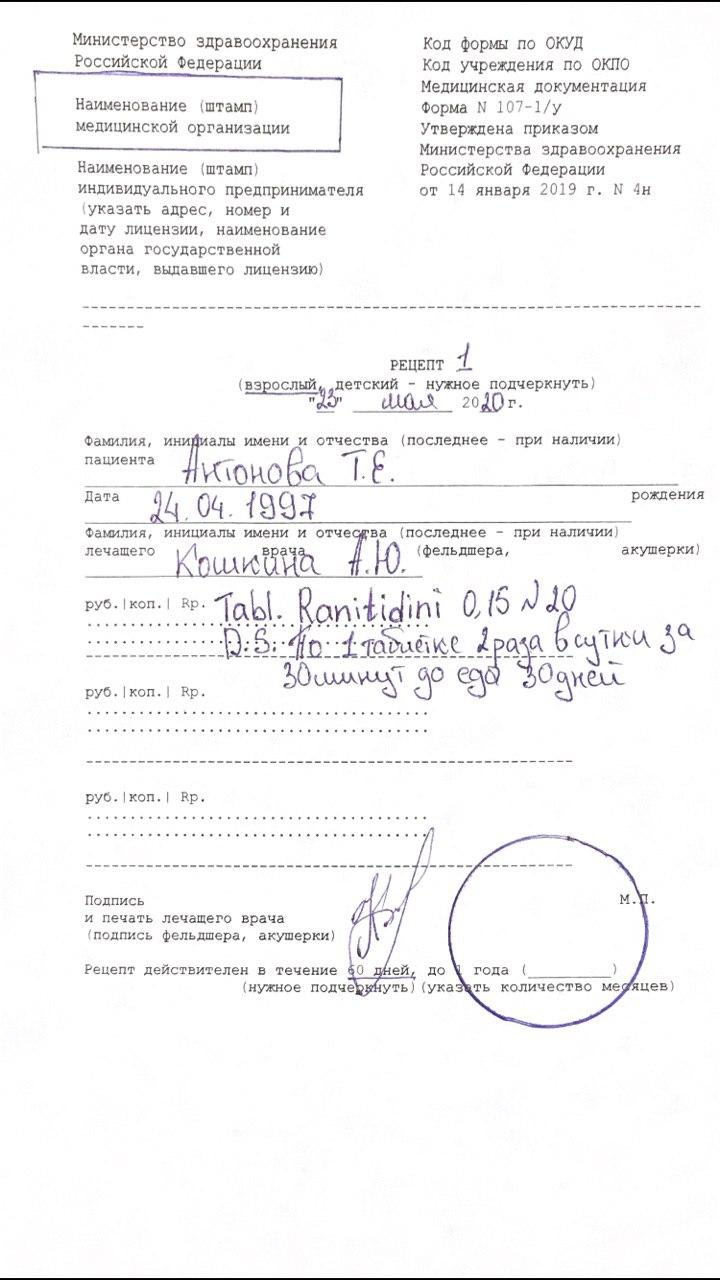 Министерство здравоохранения
Российской Федерации
Наименование (штамп)
медицинской организации
Наименование (штамп)
индивидуального предпринимателя
(указать адрес, номер и
дату лицензии, наименование
органа государственной
власти, выдавшего лицензию)
Код формы по ОКУД
Код учреждения по ОКПО
Медицинская документация
Форма N 107-1/у
Утверждена приказом
Министерства здравоохранения
Российской Федерации
от 14 января 2019 г. N 4н
РЕЦЕПТ 1
(взрослый, детский - нужное подчеркнуть)
"23" мая 2020 г.
Фамилия, инициалы имени и отчества (последнее - при наличии)
пациента Антонова Т.Е.
Дата 24.04.1997 рождения
Фамилия, инициалы имени и отчества (последнее - при наличии)
лечащего врача (фельдшера, акушерки)
Кошкина А.Ю.
руб.|коп.| Rp. Tabl. Ranitidini 0,15 N 20
D.S. По 1 таблетке 2 раза в сутки за
30 минут до еды 30 дней
руб.|коп.| Rp.
руб.|коп.| Rp.
Подпись М.П.
и печать лечащего врача
(подпись фельдшера, акушерки)
Рецепт действителен в течение 60 дней, до 1 года (__________)
(нужное подчеркнуть) (указать количество месяцев)